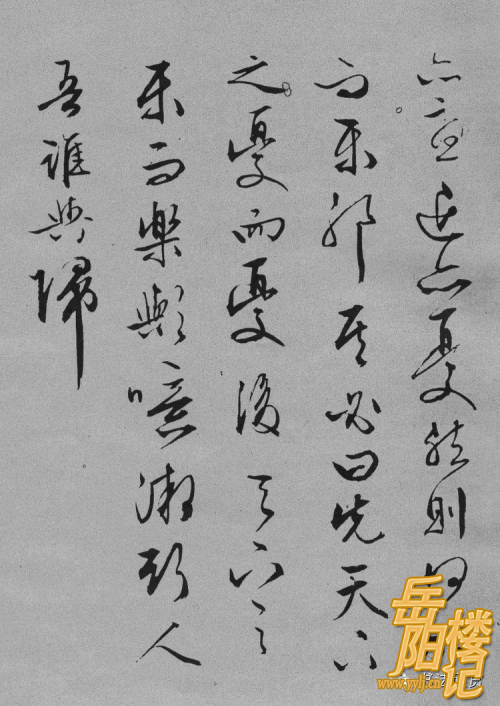 亦憂退亦憂然則何
而乐耶其必曰先天下
之憂而憂後天下之
乐而樂歟噫微斯人
吾誰與歸
岳阳楼记
www.yylj.cn